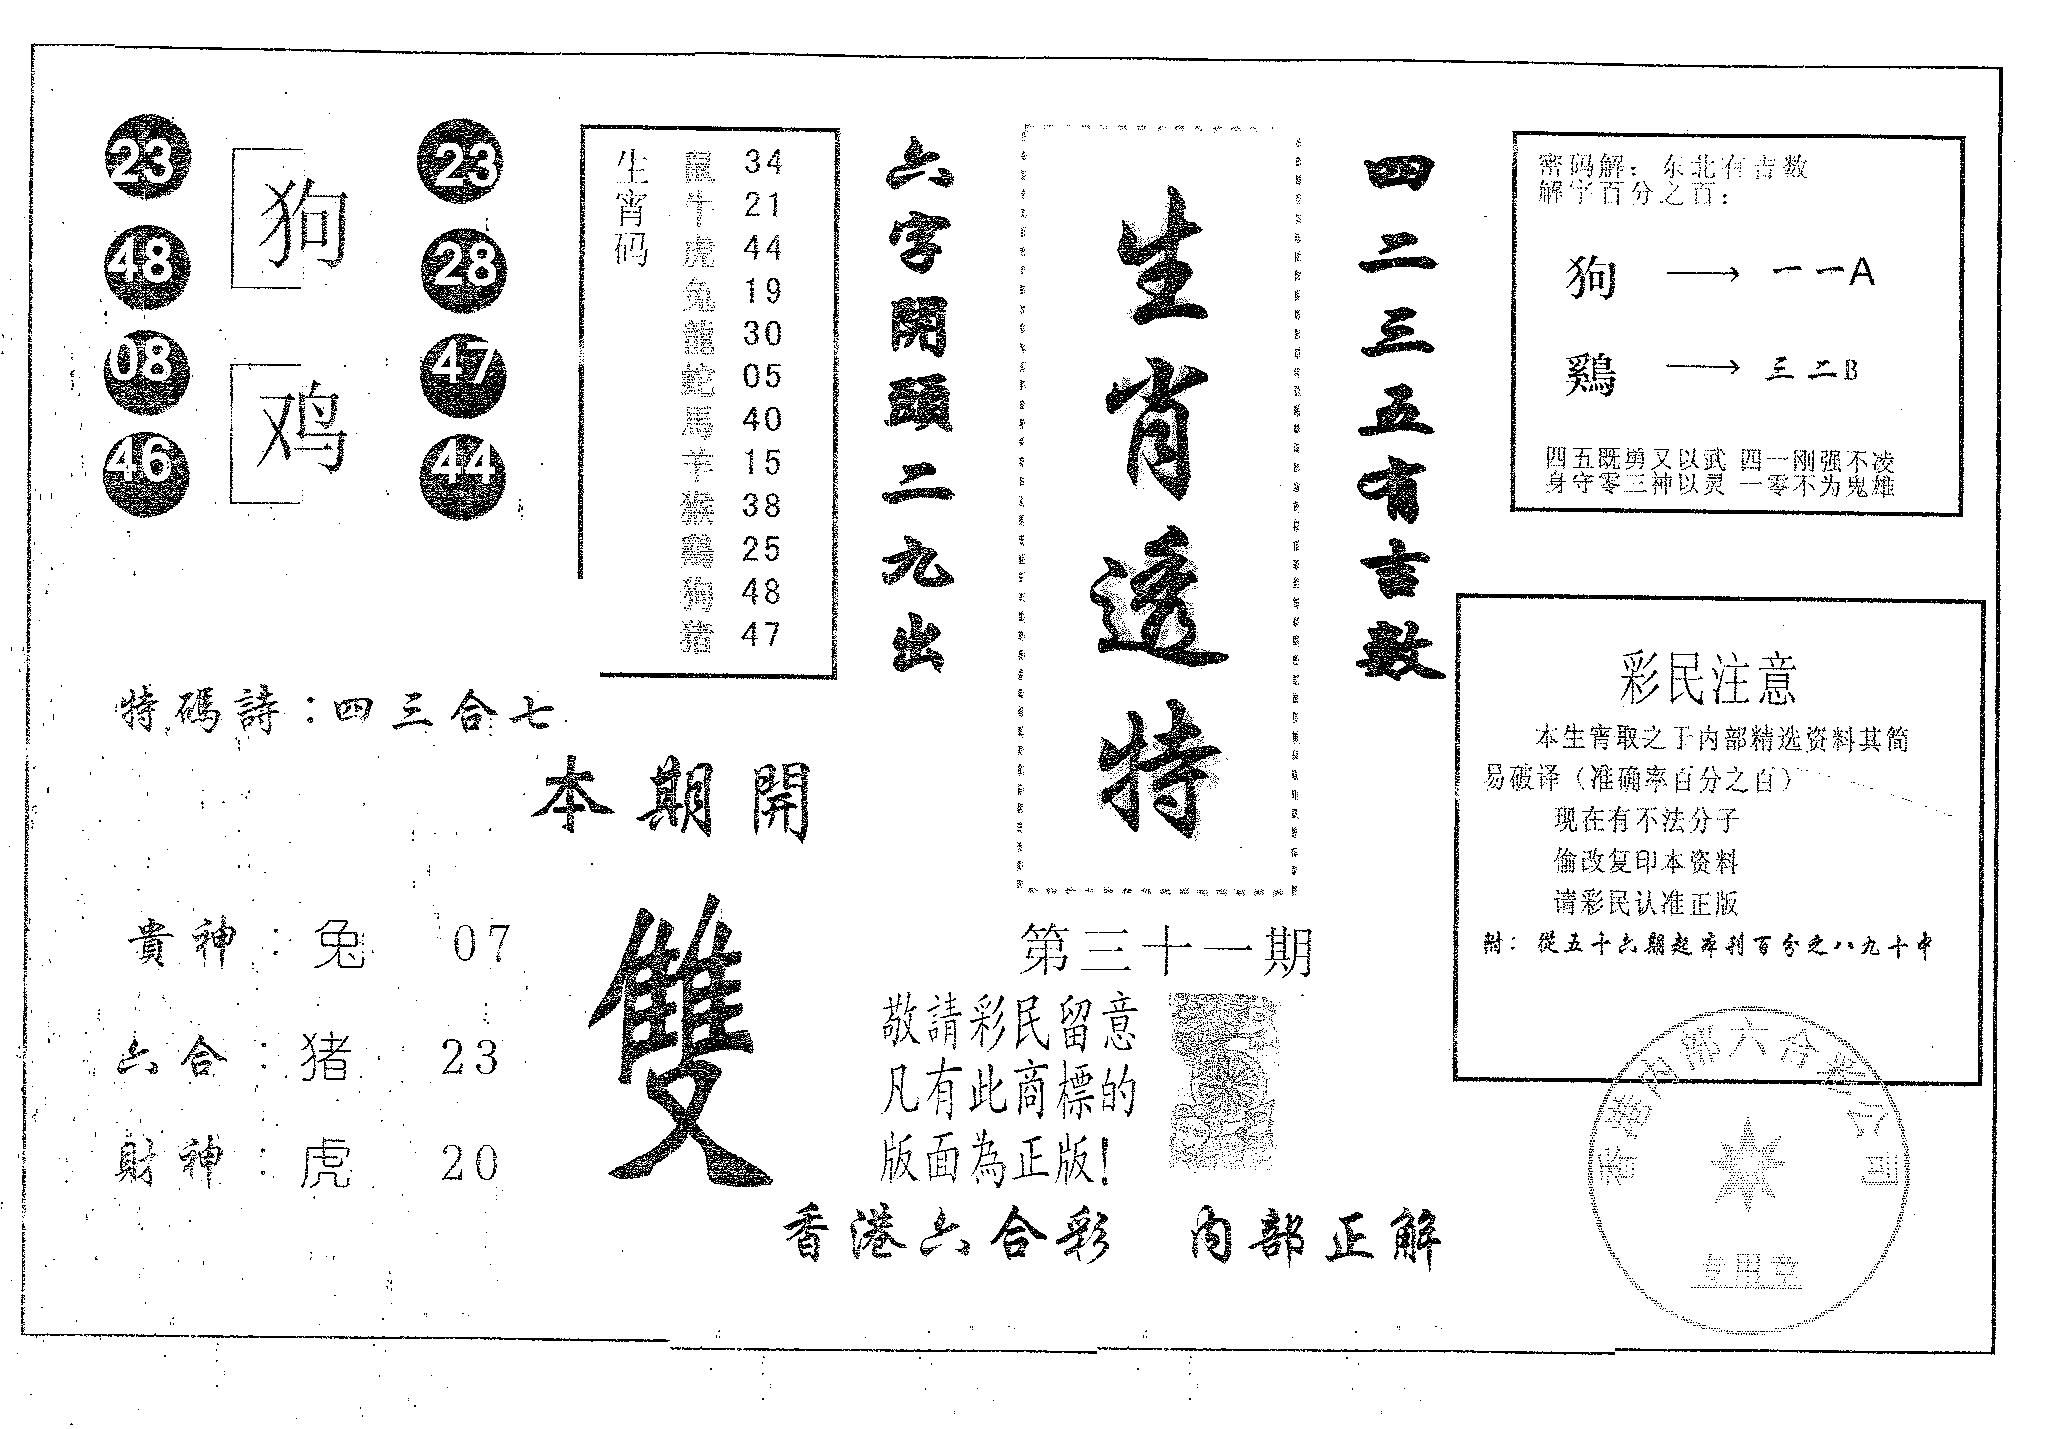 23
48
08
46
狗
鸡
23
28
47
44
生宵码
龍 34
牛 21
虎 44
兔 19
龍 30
蛇 05
馬 40
羊 15
猴 38
鷄 25
狗 48
猪 47
特碼詩:四三合七
本期開
雙
貴神:兔 07
六合:猪 23
財神:虎 20
六字開頭二九出
生肖透特
四二三五有吉数
第三十一期
敬請彩民留意
凡有此商標的
版面為正版!
香港六合彩 内部正解
密码解:东北有吉数
解字百分之百:
狗 → 一一A
鷄 → 三二B
四五既勇又以武 四一刚强不凌
身守零三神以灵 一零不为鬼雄
彩民注意
本生宵取之于内部精选资料其简
易破译(准确率百分之百)
现在有不法分子
偷改复印本资料
请彩民认准正版
附:從五十六期起本刊百分之八九十中
香港内部六合彩公司
专用章